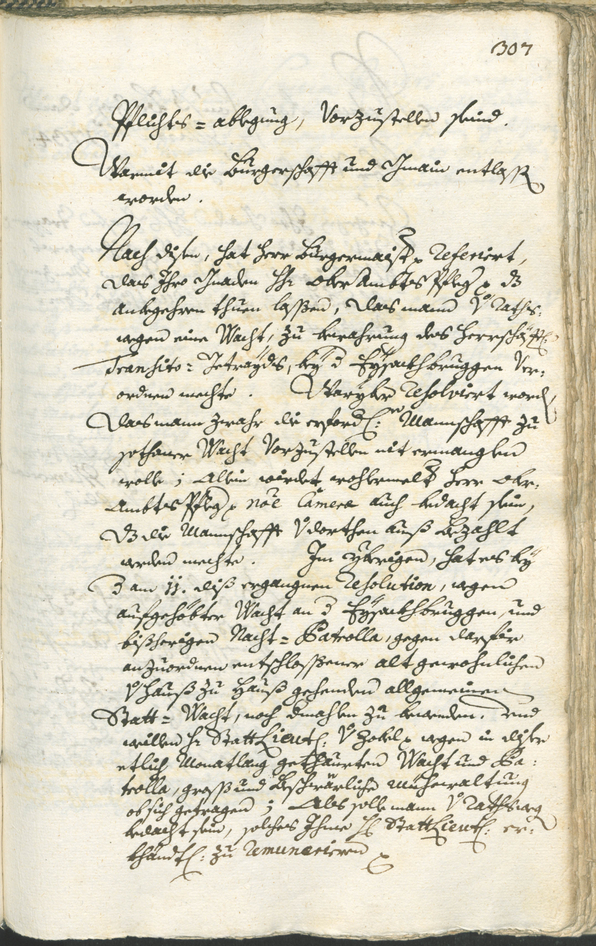 307
Pflichts = ablegung, Vorzustellen seind.
Warmit die Burgerschafft und Gmain entlasst
worden.
Nach disem, hat Herr Burgermaister Referiert,
dass Ihro Gnaden Hr. OberAmbtsPfleger dz
anbegehren thuen lassen, dass mann V Raths
wegen eine Wacht, zu bewahrung des Herrschafftl.
Transito = Getraydts, bey d Eysackhbruggen Ver:
ordnen mechte. Waryber Resolviert worden
dass mann zwahr die erforderl: Mannschafft zu
sothaner Wacht Vorzustellen nit ermanglen
wolle; Allein würdet wohlermelt Herr Ober:
AmbtsPfleger noe Camera auch bedacht sein,
dz die Mannschafft V dorthen auss bezahlt
werden mechte. Im ybrigen, hat es bey
d am 11. diss ergangnen Resolution, wegen
aufgehöbter Wacht an d Eysackhbruggen, und
bissherigen Nacht = Patrolla, gegen darfür
anzuordnen entschlossener alt gewohnlichen
V Hauss zu Hauss gehenden allgemeinen
Statt = Wacht, noch dmahlen zu bewenden. Und
weillen Hr StattLieut: V Zobel wegen in diser
etlich Monatlang gethaurten Wacht und Pa:
trolla, gross und beschwärliche müehewaltung
ob sich getragen; Als solle mann V Rathswegen
bedacht sein, solches Ihme Hr StattLieut: er:
khandtl: zu Remunerieren